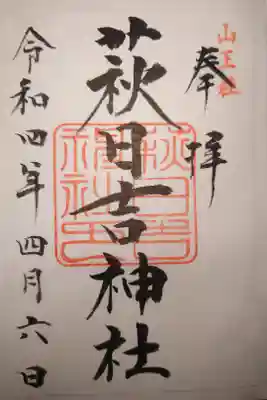 山王社
奉拝
萩日吉神社
萩日吉神社之印
令和四年四月六日